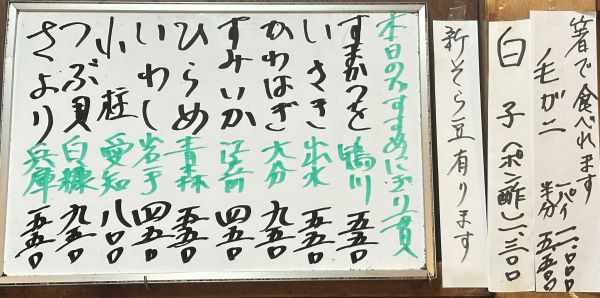 箸で食べれます
毛がニ 一パイ 一一、〇〇〇
半分 五、五〇〇
白子(ポン酢)一、三〇〇
新そら豆有ります
本日のおすすめにぎり一貫
すまかつを 鴨川 五五〇
いさき 出水 五五〇
かわはぎ 大分 九五〇
すみいか 江戸前 四五〇
ひらめ 青森 五五〇
いわし 岩手 四五〇
小柱 愛知 八〇〇
つぶ貝 白糠 九五〇
さより 兵庫 五五〇